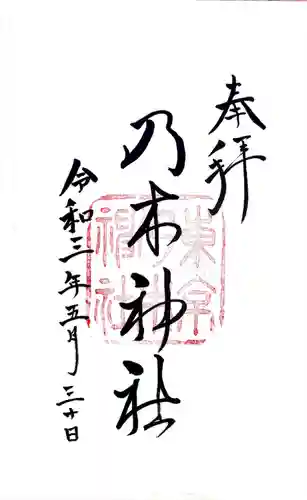 奉拝
乃木神社
令和三年五月三十日